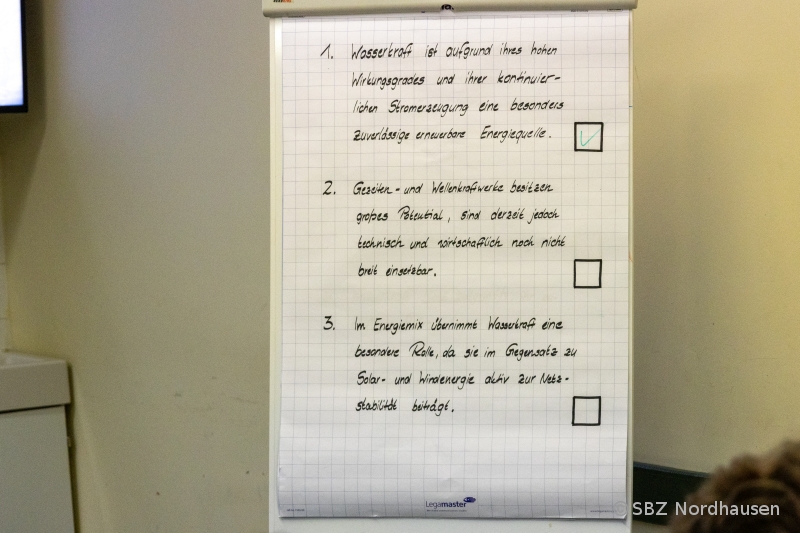 1. Wasserkraft ist aufgrund ihres hohen
Wirkungsgrades und ihrer kontinuier-
lichen Stromerzeugung eine besonders
zuverlässige erneuerbare Energiequelle.
2. Gezeiten- und Wellenkraftwerke besitzen
großes Potential, sind derzeit jedoch
technisch und wirtschaftlich noch nicht
breit einsetzbar.
3. Im Energiemix übernimmt Wasserkraft eine
besondere Rolle, da sie im Gegensatz zu
Solar- und Windenergie aktiv zur Netz-
stabilität beiträgt.
Legamaster
SBZ Nordhausen